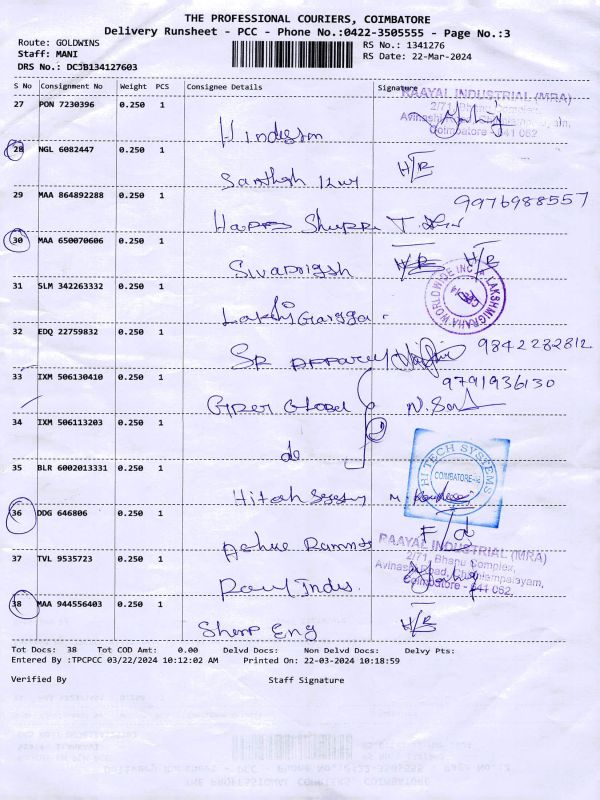 THE PROFESSIONAL COURIERS, COIMBATORE
Delivery Runsheet - PCC - Phone No.:0422-3505555 - Page No.:3
Route: GOLDWINS
Staff: MANI
DRS No.: DCJB134127603
RS No.: 1341276
RS Date: 22-Mar-2024
S No Consignment No Weight PCS Consignee Details Signature
27 PON 7230396 0.250 1
RAAYAL INDUSTRIAL (MRA)
2/71, Bhanu Complex,
Coimbatore - 641 062
28 NGL 6082447 0.250 1
Santhosh H/R
29 MAA 864892288 0.250 1
Happy 9976988557
30 MAA 650070606 0.250 1
H/R H/R
31 SLM 342263332 0.250 1
LAKSHMIGRAHA WORLDWIDE INC
32 EDQ 22759832 0.250 1
SP 9842282812
33 IXM 506130410 0.250 1
9791936130
34 IXM 506113203 0.250 1
do
35 BLR 6002013331 0.250 1
HI TECH SYSTEMS
COIMBATORE
36 DDG 646806 0.250 1
37 TVL 9535723 0.250 1
RAAYAL INDUSTRIAL (MRA)
2/71, Bhanu Complex,
Avinashi Road, Chinniampalayam,
Coimbatore - 641 062.
38 MAA 944556403 0.250 1
Sharp Eng H/R
Tot Docs: 38 Tot COD Amt: 0.00 Delvd Docs: Non Delvd Docs: Delvy Pts:
Entered By :TPCPCC 03/22/2024 10:12:02 AM Printed On: 22-03-2024 10:18:59
Verified By Staff Signature